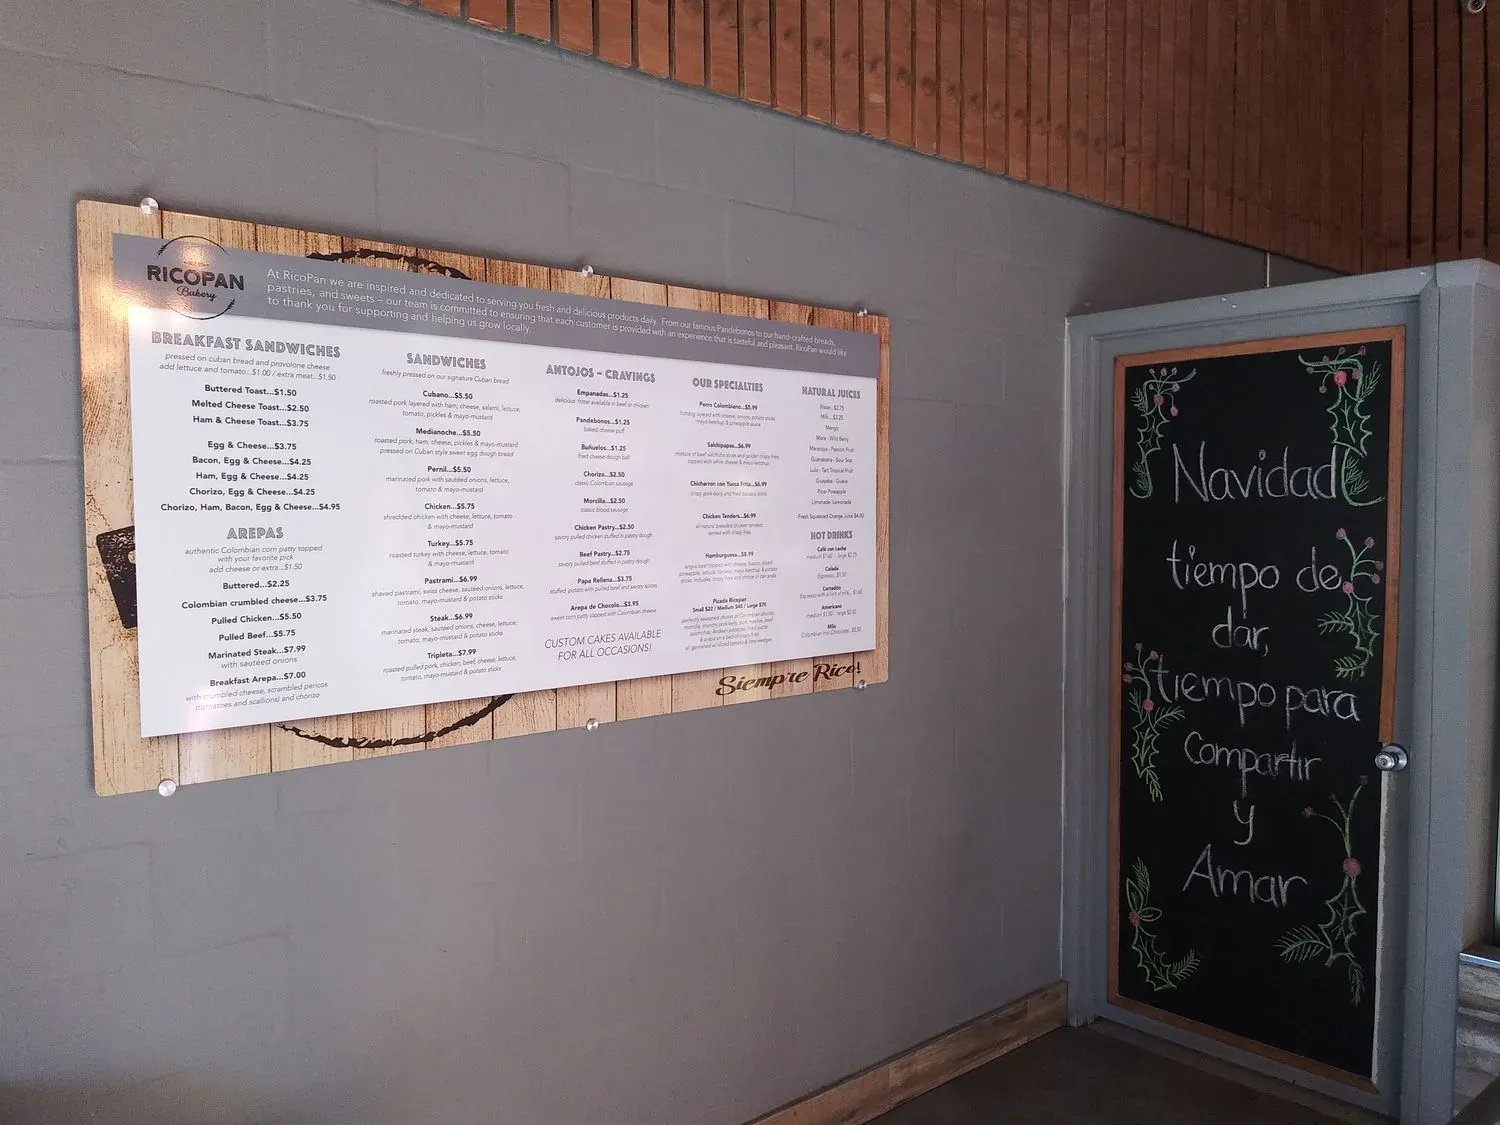 RICOPAN
Bakery
At RicoPan we are inspired and dedicated to serving you fresh and delicious products daily. From our famous Pandebonos to our hand-crafted breads,
pastries, and sweets – our team is committed to ensuring that each customer is provided with an experience that is tasteful and pleasant. RicoPan would like
to thank you for supporting and helping us grow locally.
BREAKFAST SANDWICHES
pressed on cuban bread and provolone cheese
add lettuce and tomato...$1.00 / extra meat...$1.50
Buttered Toast...$1.50
Melted Cheese Toast...$2.50
Ham & Cheese Toast...$3.75
Egg & Cheese...$3.75
Bacon, Egg & Cheese...$4.25
Ham, Egg & Cheese...$4.25
Chorizo, Egg & Cheese...$4.25
Chorizo, Ham, Bacon, Egg & Cheese...$4.95
AREPAS
authentic Colombian corn patty topped
with your favorite pick
add cheese or extra...$1.50
Buttered...$2.25
Colombian crumbled cheese...$3.75
Pulled Chicken...$5.50
Pulled Beef...$5.75
Marinated Steak...$7.99
with sautéed onions
Breakfast Arepa...$7.00
with crumbled cheese, scrambled pericos
(tomatoes and scallions) and chorizo
SANDWICHES
freshly pressed on our signature Cuban bread
Cubano...$5.50
roasted pork layered with ham, cheese, salami, lettuce,
tomato, pickles & mayo-mustard
Medianoche...$5.50
roasted pork, ham, cheese, pickles & mayo-mustard
pressed on Cuban style sweet egg dough bread
Pernil...$5.50
marinated pork with sautéed onions, lettuce,
tomato & mayo-mustard
Chicken...$5.75
shredded chicken with cheese, lettuce, tomato
& mayo-mustard
Turkey...$5.75
roasted turkey with cheese, lettuce, tomato
& mayo-mustard
Pastrami...$6.99
shaved pastrami, swiss cheese, sautéed onions, lettuce,
tomato, mayo-mustard & potato sticks
Steak...$6.99
marinated steak, sautéed onions, cheese, lettuce,
tomato, mayo-mustard & potato sticks
Tripleta...$7.99
roasted pulled pork, chicken, beef, cheese, lettuce,
tomato, mayo-mustard & potato sticks
ANTOJOS - CRAVINGS
Empanadas...$1.25
delicious fritter available in beef or chicken
Pandebonos...$1.25
baked cheese puff
Buñuelos...$1.25
fried cheese dough ball
Chorizo...$2.50
classic Colombian sausage
Morcilla...$2.50
classic blood sausage
Chicken Pastry...$2.50
savory pulled chicken stuffed in pastry dough
Beef Pastry...$2.75
savory pulled beef stuffed in pastry dough
Papa Rellena...$3.75
stuffed potato with pulled beef and savory spices
Arepa de Chocolo...$3.95
sweet corn patty topped with Colombian cheese
CUSTOM CAKES AVAILABLE
FOR ALL OCCASIONS!
OUR SPECIALTIES
Perro Colombiano...$5.99
hotdog layered with cheese, onions, potato sticks
mayo-ketchup & pineapple sauce
Salchipapas...$6.99
mixture of beef salchicha slices and golden crispy fries,
topped with white cheese & mayo-ketchup
Chicharron con Yucca Frita...$6.99
crispy pork belly and fried cassava sticks
Chicken Tenders...$6.99
all natural breaded chicken tenders
served with crispy fries
Hamburguesa...$8.99
angus beef topped with cheese, bacon, sliced
pineapple, lettuce, tomato, mayo-ketchup & potato
sticks. Includes, crispy fries and choice of can soda
Picada Ricopan
Small $22 / Medium $40 / Large $70
NATURAL JUICES
Water...$2.75
Milk...$3.25
Mango
Mora - Wild Berry
Maracuya - Passion Fruit
Guanabana - Sour Sop
Lulo - Tart Tropical Fruit
Guayaba - Guava
Pina- Pineapple
Limonada- Lemonade
Fresh Squeezed Orange Juice $4.00
HOT DRINKS
Café con Leche
medium $1.60 - large $2.75
Colada
Espresso...$1.50
Cortadito
Espresso with a hint of milk...$1.60
Americano
medium $1.50 - large $2.50
Milo
Colombian Hot Chocolate...$3.50
Siempre Rico!
Navidad
tiempo de
dar,
tiempo para
Compartir
y
Amar